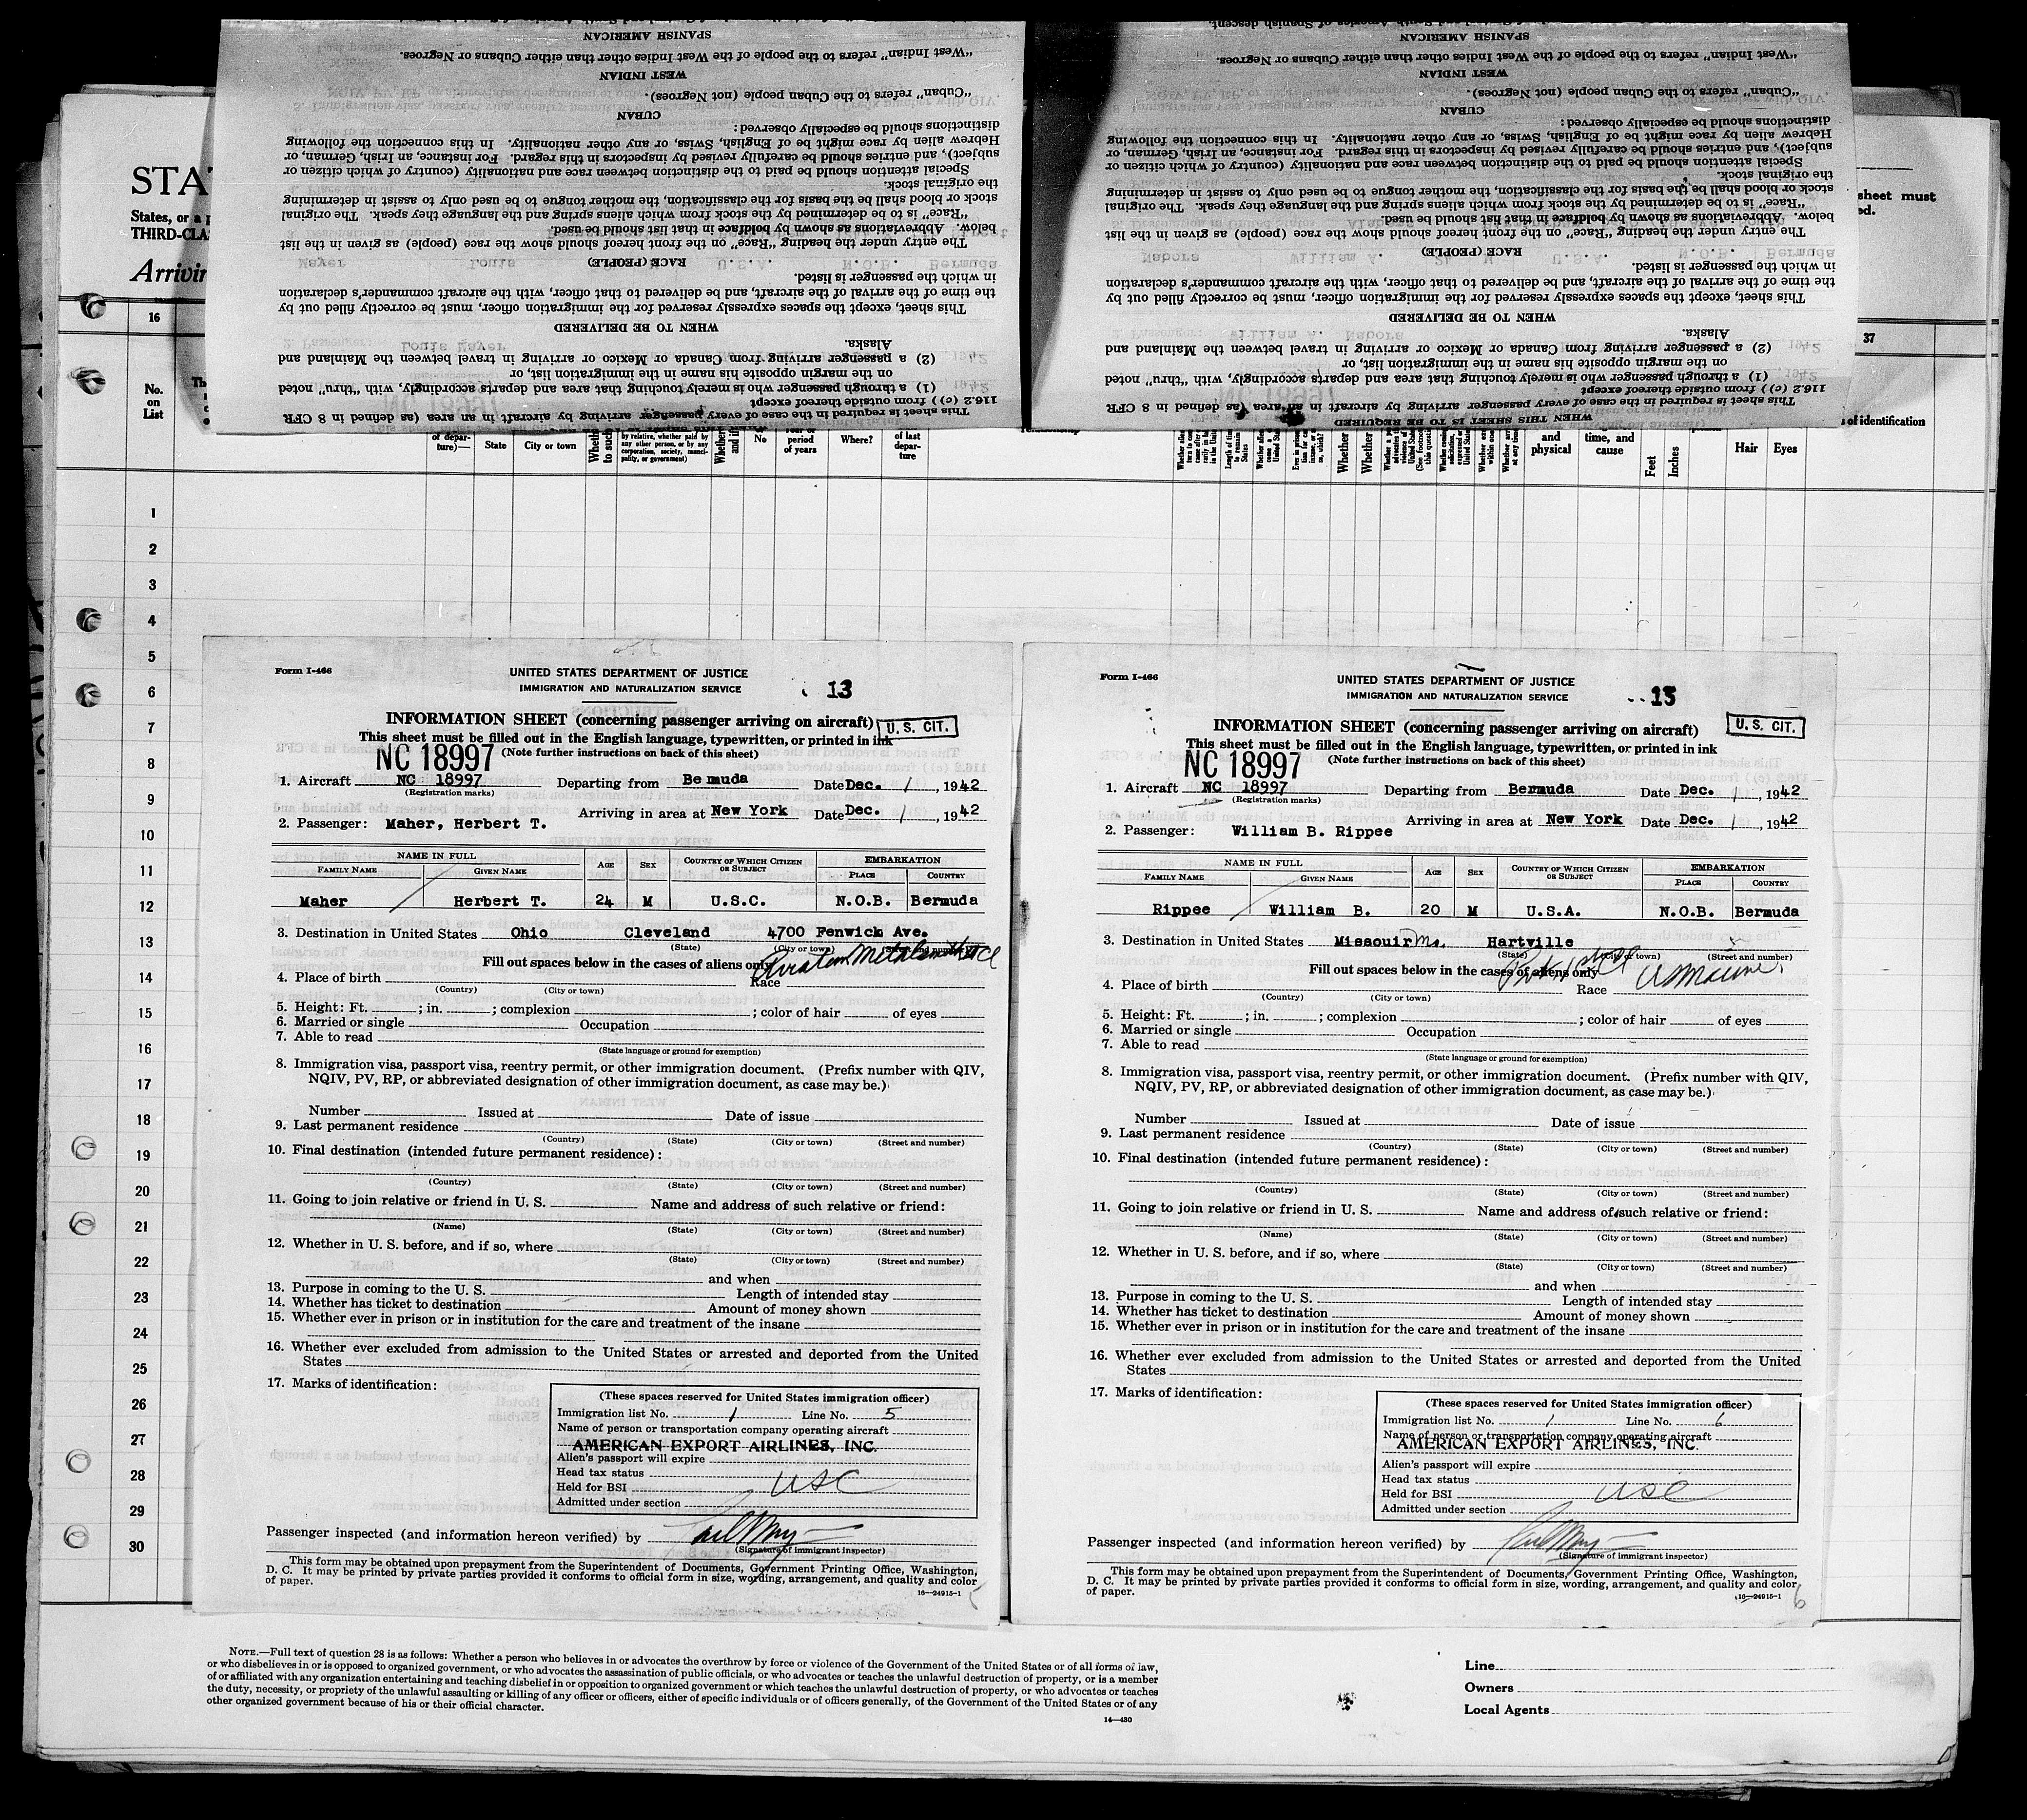 SPANISH AMERICAN
"West Indian" refers to the people of the West Indies other than either Cubans or Negroes.
WEST INDIAN
"Cuban" refers to the Cuban people (not Negroes).
CUBAN
distinctions should be especially observed:
Hebrew alien by race might be of English, Swiss, or any other nationality. In this connection the following
subject), and entries should be carefully revised by inspectors in this regard. For instance, an Irish, German, or
Special attention should be paid to the distinction between race and nationality (country of which citizen or
the original stock.
stock or blood shall be the basis for the classification, the mother tongue to be used only to assist in determining
"Race" is to be determined by the stock from which aliens spring and the language they speak. The original
below. Abbreviations as shown by boldface in that list should be used.
The entry under the heading "Race" on the front hereof should show the race (people) as given in the list
RACE (PEOPLE)
in which the passenger is listed.
the time of the arrival of the aircraft, and be delivered to that officer, with the aircraft commander's declaration
This sheet, except the spaces expressly reserved for the immigration officer, must be correctly filled out by
WHEN TO BE DELIVERED
Alaska.
(2) a passenger arriving from Canada or Mexico or arriving in travel between the Mainland and
on the margin opposite his name in the immigration list, or
(1) a through passenger who is merely touching that area and departs accordingly, with "thru" noted
116.2 (c) ) from outside thereof except
This sheet is required in the case of every passenger arriving by aircraft in an area (as defined in 8 CFR
SPANISH AMERICAN
"West Indian" refers to the people of the West Indies other than either Cubans or Negroes.
WEST INDIAN
"Cuban" refers to the Cuban people (not Negroes).
CUBAN
distinctions should be especially observed:
Hebrew alien by race might be of English, Swiss, or any other nationality. In this connection the following
subject), and entries should be carefully revised by inspectors in this regard. For instance, an Irish, German, or
Special attention should be paid to the distinction between race and nationality (country of which citizen or
the original stock.
stock or blood shall be the basis for the classification, the mother tongue to be used only to assist in determining
"Race" is to be determined by the stock from which aliens spring and the language they speak. The original
below. Abbreviations as shown by boldface in that list should be used.
The entry under the heading "Race" on the front hereof should show the race (people) as given in the list
RACE (PEOPLE)
in which the passenger is listed.
the time of the arrival of the aircraft, and be delivered to that officer, with the aircraft commander's declaration
This sheet, except the spaces expressly reserved for the immigration officer, must be correctly filled out by
WHEN TO BE DELIVERED
Alaska.
(2) a passenger arriving from Canada or Mexico or arriving in travel between the Mainland and
on the margin opposite his name in the immigration list, or
(1) a through passenger who is merely touching that area and departs accordingly, with "thru" noted
116.2 (c) ) from outside thereof except
This sheet is required in the case of every passenger arriving by aircraft in an area (as defined in 8 CFR
WHEN THIS SHEET IS TO BE REQUIRED
STA
States, or a
THIRD-CLA
Arrivin
sheet must
ed.
16
37
No.
on
List
of identification
of depar-
ture)—
State
City or town
by relative, whether paid by
any other person, or by any
corporation, society, munici-
pality, or government)
No
period
of years
Where?
of last
depar-
ture
and
physical
time, and
cause
Feet
Inches
Hair
Eyes
1
2
3
4
5
6
7
8
9
10
11
12
13
14
15
16
17
18
19
20
21
22
23
24
25
26
27
28
29
30
Form I-466
UNITED STATES DEPARTMENT OF JUSTICE
IMMIGRATION AND NATURALIZATION SERVICE
13
INFORMATION SHEET (concerning passenger arriving on aircraft)
U. S. CIT.
This sheet must be filled out in the English language, typewritten, or printed in ink
NC 18997 (Note further instructions on back of this sheet)
1. Aircraft NC 18997 Departing from Bermuda Date Dec. 1, 1942
(Registration marks)
Arriving in area at New York Date Dec. 1, 1942
2. Passenger: Maher, Herbert T.
NAME IN FULL AGE SEX COUNTRY OF WHICH CITIZEN OR SUBJECT EMBARKATION
FAMILY NAME GIVEN NAME PLACE COUNTRY
Maher Herbert T. 24 M U.S.C. N.O.B. Bermuda
3. Destination in United States Ohio Cleveland 4700 Fenwick Ave.
(State) (City or town) (Street and number)
Aviation Metalsmith
Fill out spaces below in the cases of aliens only
4. Place of birth Race
(Country) (City or town)
5. Height: Ft. ; in. ; complexion ; color of hair of eyes
6. Married or single Occupation
7. Able to read
(State language or ground for exemption)
8. Immigration visa, passport visa, reentry permit, or other immigration document. (Prefix number with QIV,
NQIV, PV, RP, or abbreviated designation of other immigration document, as case may be.)
Number Issued at Date of issue
9. Last permanent residence
(Country) (State) (City or town) (Street and number)
10. Final destination (intended future permanent residence):
(Country) (State) (City or town) (Street and number)
11. Going to join relative or friend in U. S. Name and address of such relative or friend:
(Name) (State) (City or town) (Street and number)
12. Whether in U. S. before, and if so, where
(State) (City or town) (Street and number)
and when
13. Purpose in coming to the U. S. Length of intended stay
14. Whether has ticket to destination Amount of money shown
15. Whether ever in prison or in institution for the care and treatment of the insane
16. Whether ever excluded from admission to the United States or arrested and deported from the United
States
17. Marks of identification:
(These spaces reserved for United States immigration officer)
Immigration list No. 1 Line No. 5
Name of person or transportation company operating aircraft
AMERICAN EXPORT AIRLINES, INC.
Alien's passport will expire
Head tax status
Held for BSI USC
Admitted under section
Passenger inspected (and information hereon verified) by
(Signature of immigrant inspector)
This form may be obtained upon prepayment from the Superintendent of Documents, Government Printing Office, Washington,
D. C. It may be printed by private parties provided it conforms to official form in size, wording, arrangement, and quality and color
of paper.
16—24915-1
5
Form I-466
UNITED STATES DEPARTMENT OF JUSTICE
IMMIGRATION AND NATURALIZATION SERVICE
13
INFORMATION SHEET (concerning passenger arriving on aircraft)
U. S. CIT.
This sheet must be filled out in the English language, typewritten, or printed in ink
NC 18997 (Note further instructions on back of this sheet)
1. Aircraft NC 18997 Departing from Bermuda Date Dec. 1, 1942
(Registration marks)
Arriving in area at New York Date Dec. 1, 1942
2. Passenger: William B. Rippee
NAME IN FULL AGE SEX COUNTRY OF WHICH CITIZEN OR SUBJECT EMBARKATION
FAMILY NAME GIVEN NAME PLACE COUNTRY
Rippee William B. 20 M U.S.A. N.O.B. Bermuda
3. Destination in United States Missouir Mo. Hartville
(State) (City or town) (Street and number)
Fill out spaces below in the cases of aliens only
4. Place of birth Race
(Country) (City or town)
5. Height: Ft. ; in. ; complexion ; color of hair of eyes
6. Married or single Occupation
7. Able to read
(State language or ground for exemption)
8. Immigration visa, passport visa, reentry permit, or other immigration document. (Prefix number with QIV,
NQIV, PV, RP, or abbreviated designation of other immigration document, as case may be.)
Number Issued at Date of issue
9. Last permanent residence
(Country) (State) (City or town) (Street and number)
10. Final destination (intended future permanent residence):
(Country) (State) (City or town) (Street and number)
11. Going to join relative or friend in U. S. Name and address of such relative or friend:
(Name) (State) (City or town) (Street and number)
12. Whether in U. S. before, and if so, where
(State) (City or town) (Street and number)
and when
13. Purpose in coming to the U. S. Length of intended stay
14. Whether has ticket to destination Amount of money shown
15. Whether ever in prison or in institution for the care and treatment of the insane
16. Whether ever excluded from admission to the United States or arrested and deported from the United
States
17. Marks of identification:
(These spaces reserved for United States immigration officer)
Immigration list No. 1 Line No. 6
Name of person or transportation company operating aircraft
AMERICAN EXPORT AIRLINES, INC.
Alien's passport will expire
Head tax status
Held for BSI USC
Admitted under section
Passenger inspected (and information hereon verified) by
(Signature of immigrant inspector)
This form may be obtained upon prepayment from the Superintendent of Documents, Government Printing Office, Washington,
D. C. It may be printed by private parties provided it conforms to official form in size, wording, arrangement, and quality and color
of paper.
16—24915-1
6
NOTE.—Full text of question 28 is as follows: Whether a person who believes in or advocates the overthrow by force or violence of the Government of the United States or of all forms of law,
or who disbelieves in or is opposed to organized government, or who advocates the assassination of public officials, or who advocates or teaches the unlawful destruction of property, or is a member
of or affiliated with any organization entertaining and teaching disbelief in or opposition to organized government or which teaches the unlawful destruction of property, or who advocates or teaches
the duty, necessity, or propriety of the unlawful assaulting or killing of any officer or officers, either of specific individuals or of officers generally, of the Government of the United States or of any
other organized government because of his or their official character.
14—430
Line
Owners
Local Agents